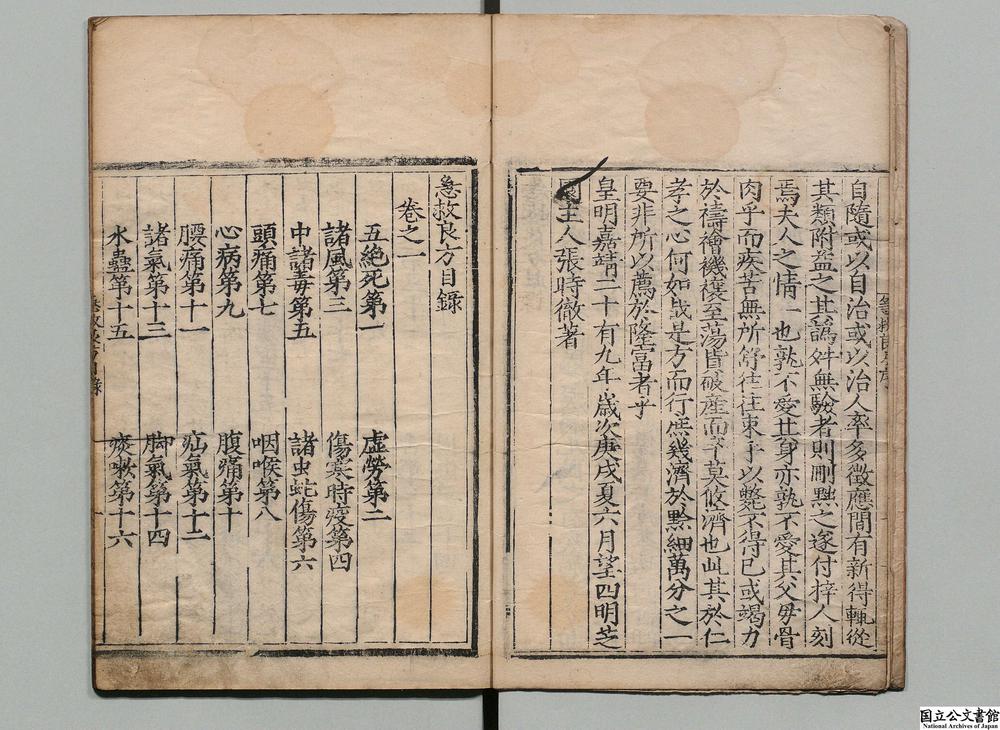 自隨或以自治或以治人率多徵應間有新得輒從
其類附益之其譌舛無驗者則刪黜之遂付梓人刻
焉夫人之情一也孰不愛其身亦孰不愛其父母骨
肉乎而疾苦無所控往往束手以斃不得已或竭力
於禱禬禨禳至蕩貲破產而卒莫攸濟也此其於仁
孝之心何如哉是方而行庶幾濟於黔細萬分之一
要非所以薦於隆富者乎
皇明嘉靖二十有九年歲次庚戌夏六月望四明芝
園主人張時徹著
急救良方目錄
卷之一
五絕死第一 虛勞第二
諸風第三 傷寒時疫第四
中諸毒第五 諸虫蛇傷第六
頭痛第七 咽喉第八
心病第九 腹痛第十
腰痛第十一 疝氣第十二
諸氣第十三 脚氣第十四
水蠱第十五 痰嗽第十六
国立公文書館
National Archives of Japan